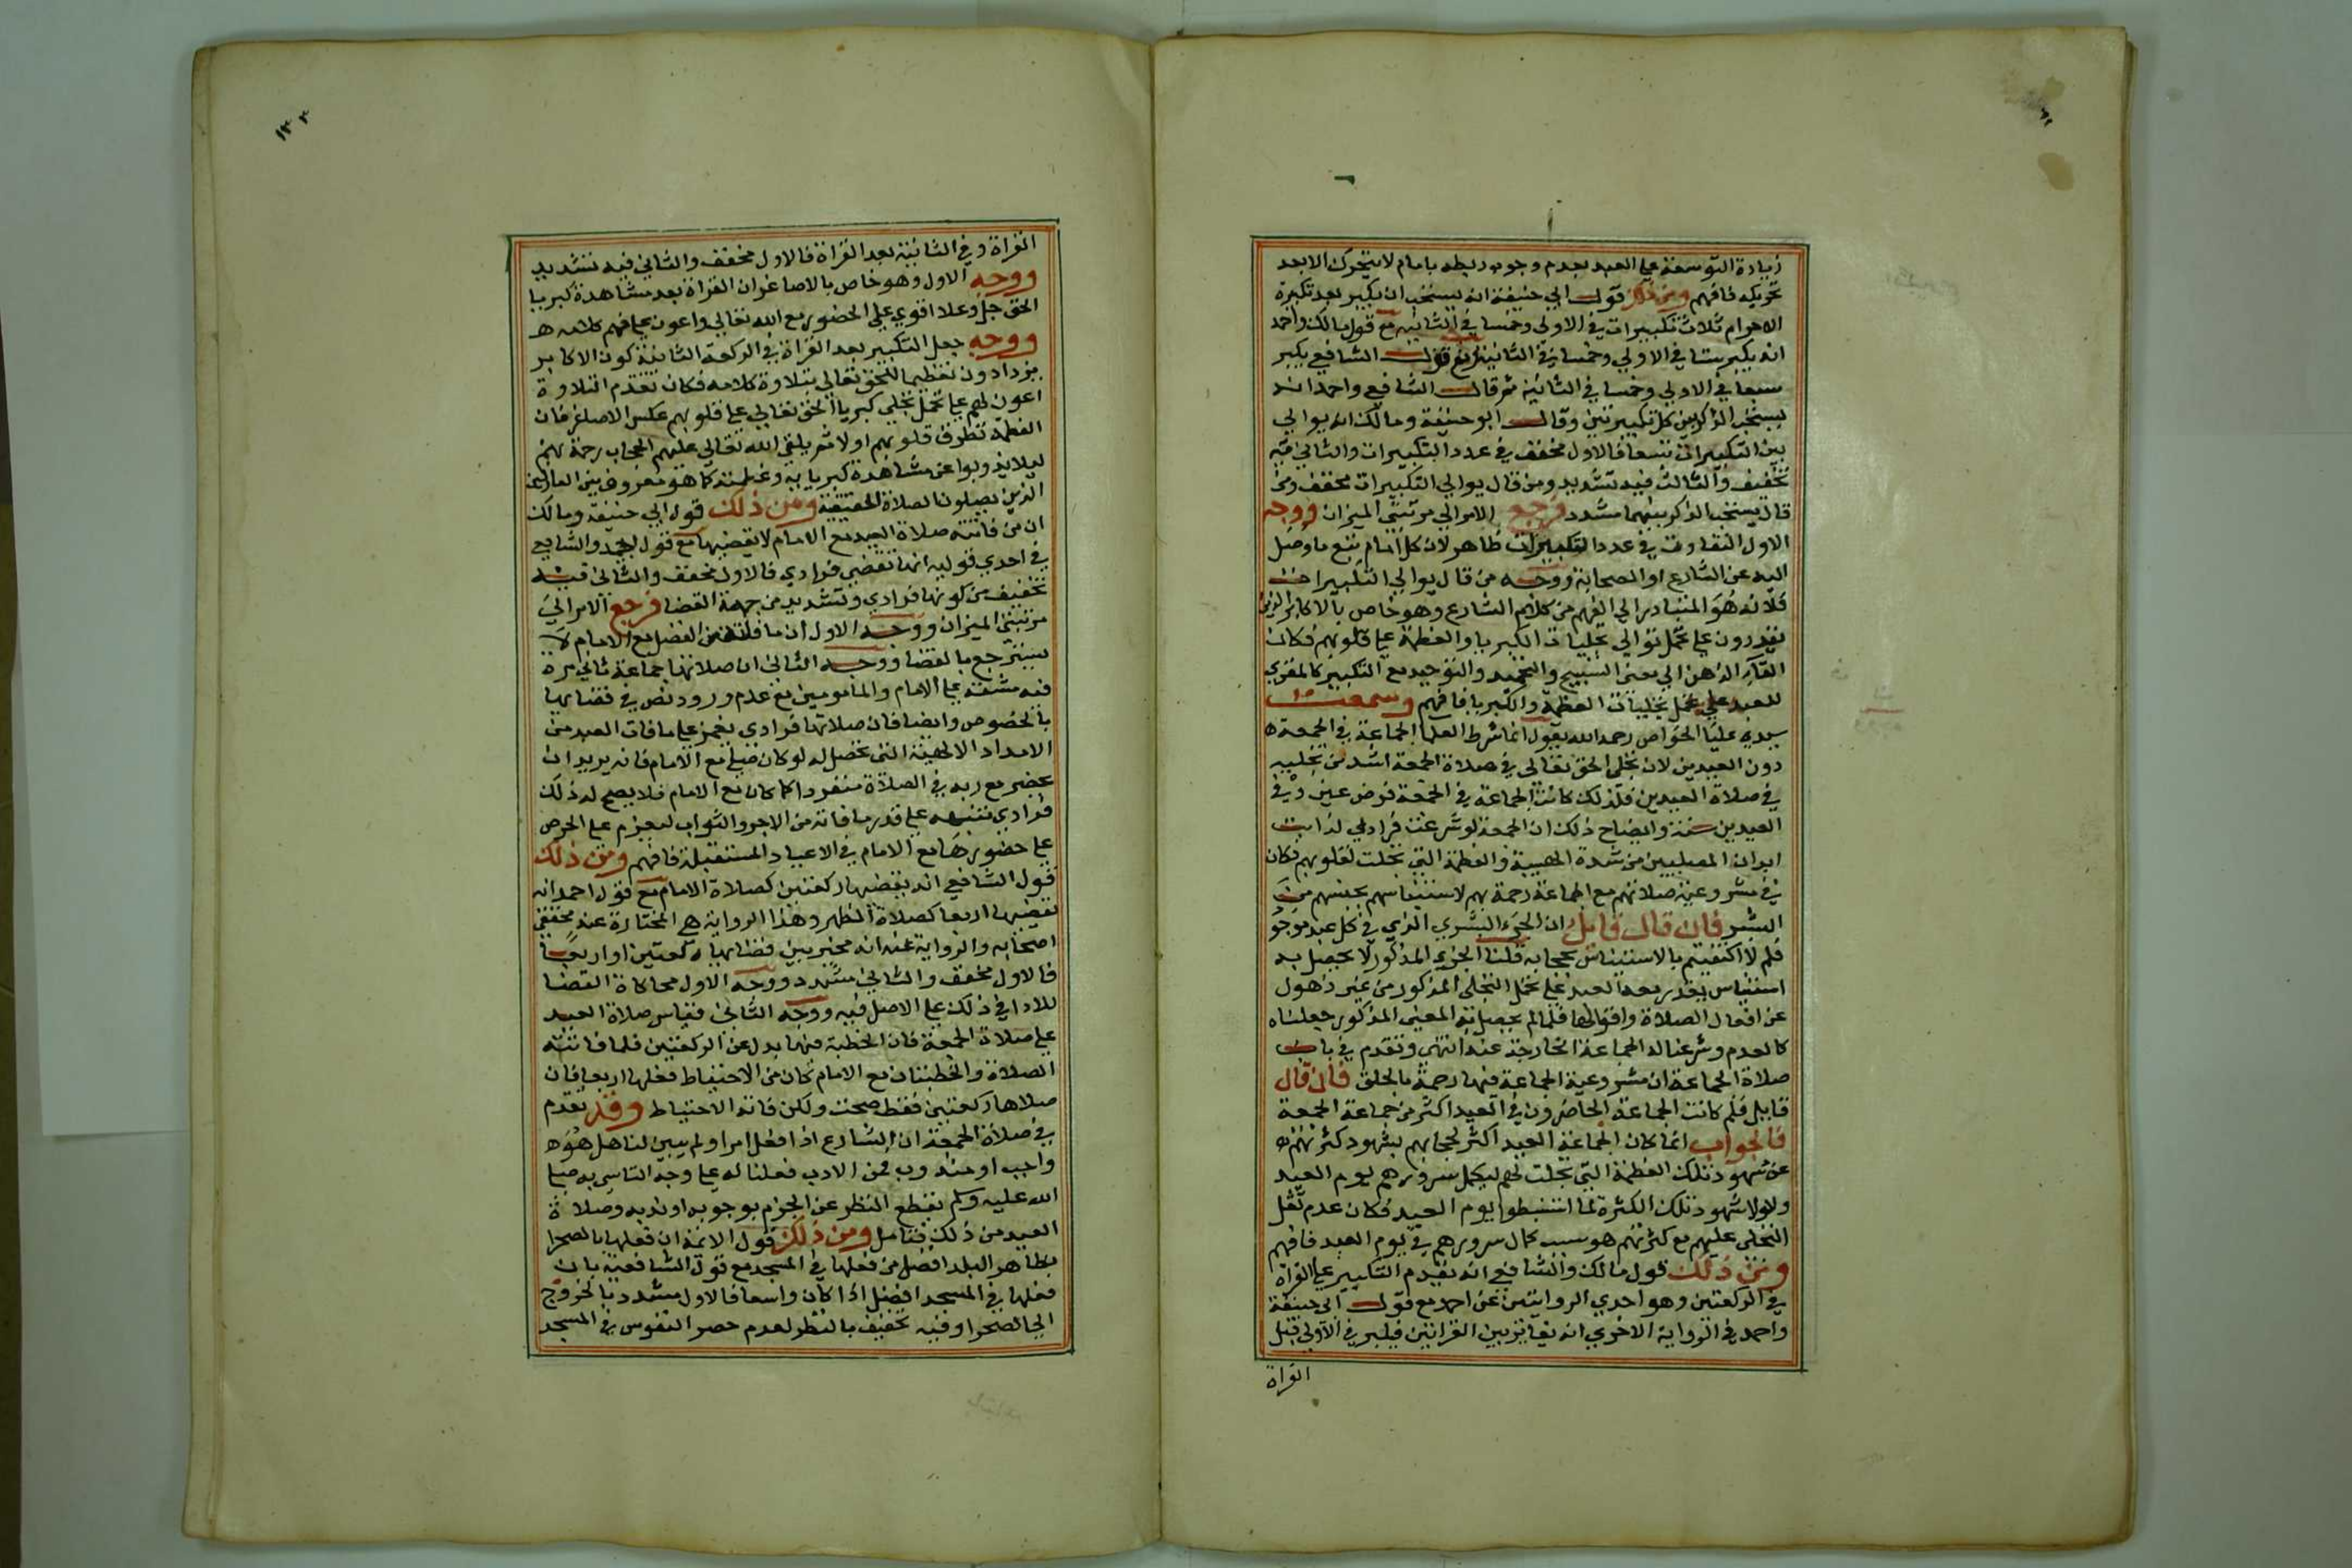 زيادة التوسعة على العبد بعدم وجوب ربطه بامام لا يتحرك الا بعد
تحريكه فافهم ومن ذلك قول ابي حنيفة انه يستحب ان يكبر بعد تكبيرة
الاحرام ثلاث تكبيرات في الاولى وخمسا في الثانية مع قول مالك واحمد
انه يكبر ستا في الاولي وخمسا في الثانية ومع قول الشافعي يكبر
سبعا في الاولي وخمسا في الثانية ثم قال الشافعي واحمد انه
يستحب الذكر بين كل تكبيرتين وقال ابو حنيفة ومالك انه يوالي
بين التكبيرات نسقا فالاول مخفف في عدد التكبيرات والثاني فيه
تخفيف والثالث فيه تشديد ومن قال يوالي التكبيرات مخفف ومن
قال يستحب الذكر بينهما مشدد فرجع الامر الي مرتبتي الميزان ووجه
الاول التفاوت في عدد التكبيرات ظاهر لان كل امام تبع ما وصل
اليه عن الشارع او الصحابة ووجه من قال يوالي التكبيرات
فلانه هو المتبادر الي الفهم من كلام الشارع وهو خاص بالاكابر الذين
يقدرون على تحمل توالي تجليات الكبريا والعظمة على قلوبهم فكان
الذهن الي معنى التسبيح والتحميد والتوحيد مع التكبير كالمقوي
للعبد على تحمل تجليات العظمة والكبريا فافهم وسمعت
سيدي عليا الخواص رحمه الله يقول انما شرط العلما الجماعة في الجمعة
دون العيدين لان تجلى الحق تعالى في صلاة الجمعة اشد من تجليه
في صلاة العيدين فلذلك كانت الجماعة في الجمعة فرض عين وفي
العيدين سنة وايضاح ذلك ان الجمعة لو شرعت فرادي لذابت
ابدان المصليين من شدة الهيبة والعظمة التي تجلت لقلوبهم فكان
في مشروعية صلاتهم مع الجماعة رحمة بهم لاستيناسهم بجنسهم من
البشر فان قال قايل ان الجزء البشري الذي في كل عبد موجود
فلم لا اكتفيتم بالاستيناس بحجابه قلنا الجزء المذكور لا يحصل به
استيناس يقدر معه العبد على تحمل التجلى المذكور من غير ذهول
عن افعال الصلاة واقوالها فلما لم يحصل به المعنى المذكور جعلناه
كالعدم وشرعنا له الجماعة الخارجة عنه انتهى وتقدم في باب
صلاة الجماعة ان مشروعية الجماعة فيها رحمة بالخلق فان قال
قايل فلم كانت الجماعة الحاضرون في العيد اكثر من جماعة الجمعة
فالجواب انما كان الجماعة العيد اكثر لحجابهم بشهود كثرتهم
عن شهود تلك العظمة التي تجلت لهم ليكمل سرورهم يوم العيد
ولولا شهود تلك الكثرة لما انبسطوا يوم العيد فكان عدم ثقل
التجلى عليهم مع كثرتهم هو سبب كمال سرورهم في يوم العيد فافهم
ومن ذلك قول مالك والشافعي انه يقدم التكبير على القراة
في الركعتين وهو احدي الروايتين عن احمد مع قول ابي حنيفة
واحمد في الرواية الاخري انه يوالي بين القراتين فيكبر في الاولى قبل
القراة
١٣٣
القراة وفي الثانية بعد القراة فالاول مخفف والثاني فيه تشديد
ووجه الاول وهو خاص بالاصاغر ان القراة بعد مشاهدة كبريا
الحق جل وعلا اقوي على الحضور مع الله تعالى واعون على فهم كلامه
ووجه جعل التكبير بعد القراة في الركعة الثانية كون الاكابر
يزدادون تعظيما للحق تعالى بتلاوة كلامه فكان تقدم التلاوة
اعون لهم على تحمل تجلي كبريا الحق تعالى على قلوبهم عكس الاصاغر فان
العظمة تطرق قلوبهم اولا ثم يلقي الله تعالى عليهم الحجاب رحمة بهم
ليلا يذوبوا عن مشاهدة كبريايه وعظمته كما هو معروف بين العارفين
الذين يصلون الصلاة الحقيقية ومن ذلك قول ابي حنيفة ومالك
ان من فاتته صلاة العيد مع الامام لا يقضيها مع قول احمد والشافعي
في احدي قوليه انها تقضي فرادي فالاول مخفف والثاني فيه
تخفيف من كونها فرادي وتشديد من جهة القضا فرجع الامر الى
مرتبتي الميزان ووجه الاول ان ما فاته من الفضل مع الامام لا
يسترجع بالقضا ووجه الثاني ان صلاتها جماعة ثاني مرة
فيه مشقة على الامام والمامومين مع عدم ورود نص في قضايها
بالخصوص وايضا فان صلاتها فرادي يخبر على ما فات العبد من
الامداد الالهية التي تحصل له لو كان صلى مع الامام فانه يريد ان
يحضر مع ربه في الصلاة منفردا كما كان مع الامام فلا يصح له ذلك
فرادي تنبيه على قدر ما فاته من الاجر والثواب ليعزم على الحرص
على حضورها مع الامام في الاعياد المستقبلة فافهم ومن ذلك
قول الشافعي انه يقضيها ركعتين كصلاة الامام مع قول احمد انه
يقضيها اربعا كصلاة الظهر وهذا الرواية هي المختارة عند محققي
اصحابه والرواية عنه انه مخير بين قضايها ركعتين او اربعا
فالاول مخفف والثاني مشدد ووجه الاول محاكاة القضا
للادا في ذلك على الاصل فيه ووجه الثاني قياس صلاة العيد
على صلاة الجمعة فان الخطبة فيها بدل عن الركعتين فلما فاتته
الصلاة والخطبتان مع الامام كان من الاحتياط فعلها اربعا فان
صلاها ركعتين فقط صحت ولكن فاته الاحتياط وقد تقدم
في صلاة الجمعة ان الشارع اذا فعل امرا ولم يبين لنا هل هو
واجب او مندوب فمن الادب فعلنا له على وجه التاسي به صلى
الله عليه وسلم بقطع النظر عن الجزم بوجوبه او ندبه وصلاة
العيد من ذلك فتامل ومن ذلك قول الائمة ان فعلها بالصحرا
بظاهر البلد افضل من فعلها في المسجد مع قول الشافعية بان
فعلها في المسجد افضل اذا كان واسعا فالاول مشدد بالخروج
الى الصحرا وفيه تخفيف بالنظر لعدم حصر النفوس في المسجد